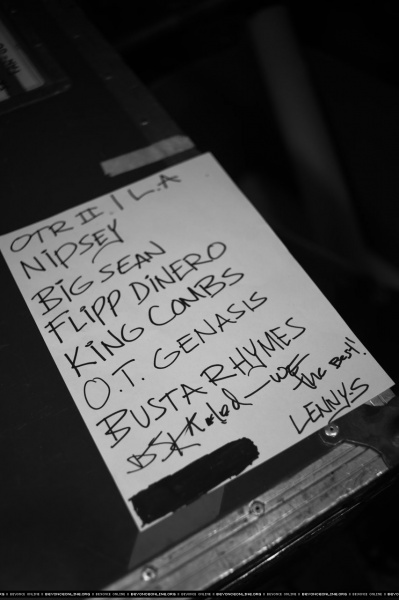 OTR II. / L.A
NIPSEY
BIG SEAN
FLIPP DINERO
KING COMBS
O.T. GENASIS
BUSTA RHYMES
Khaled — WE
the Best!
LENNY-S
BEYONCEONLINE.ORG